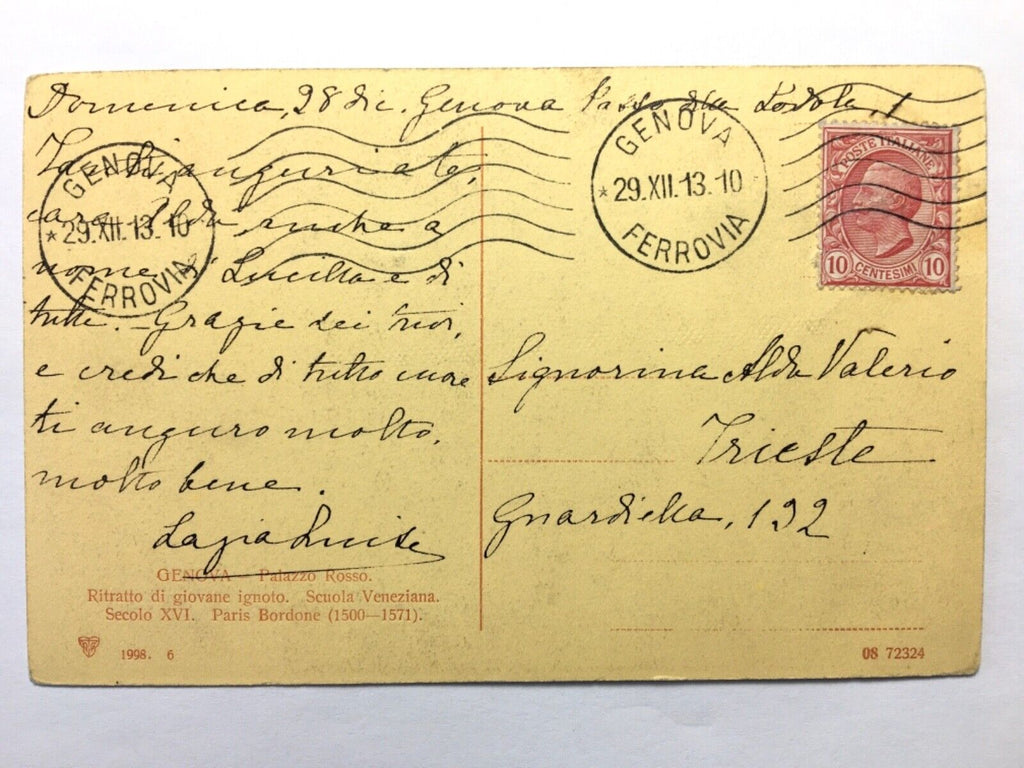 Domenica, 28 dic. Genova Passo della Lodola, 1
auguriate,
cara Alda anche a
nome di Lucilla e di
tutti. - Grazie dei tuoi,
e credi che di tutto cuore
ti auguro molto,
molto bene.
GENOVA
*29.XII.13.10
FERROVIA
GENOVA
*29.XII.13.10
FERROVIA
POSTE ITALIANE
10 CENTESIMI 10
Signorina Alda Valerio
Trieste
Guardiella, 132
GENOVA — Palazzo Rosso.
Ritratto di giovane ignoto. Scuola Veneziana.
Secolo XVI. Paris Bordone (1500—1571).
1998. 6
08 72324